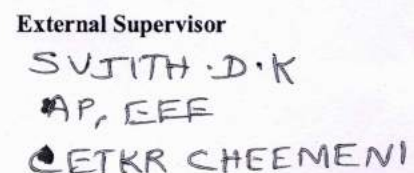 External Supervisor
SUJITH.D.K
AP, EEE
CETKR CHEEMENI